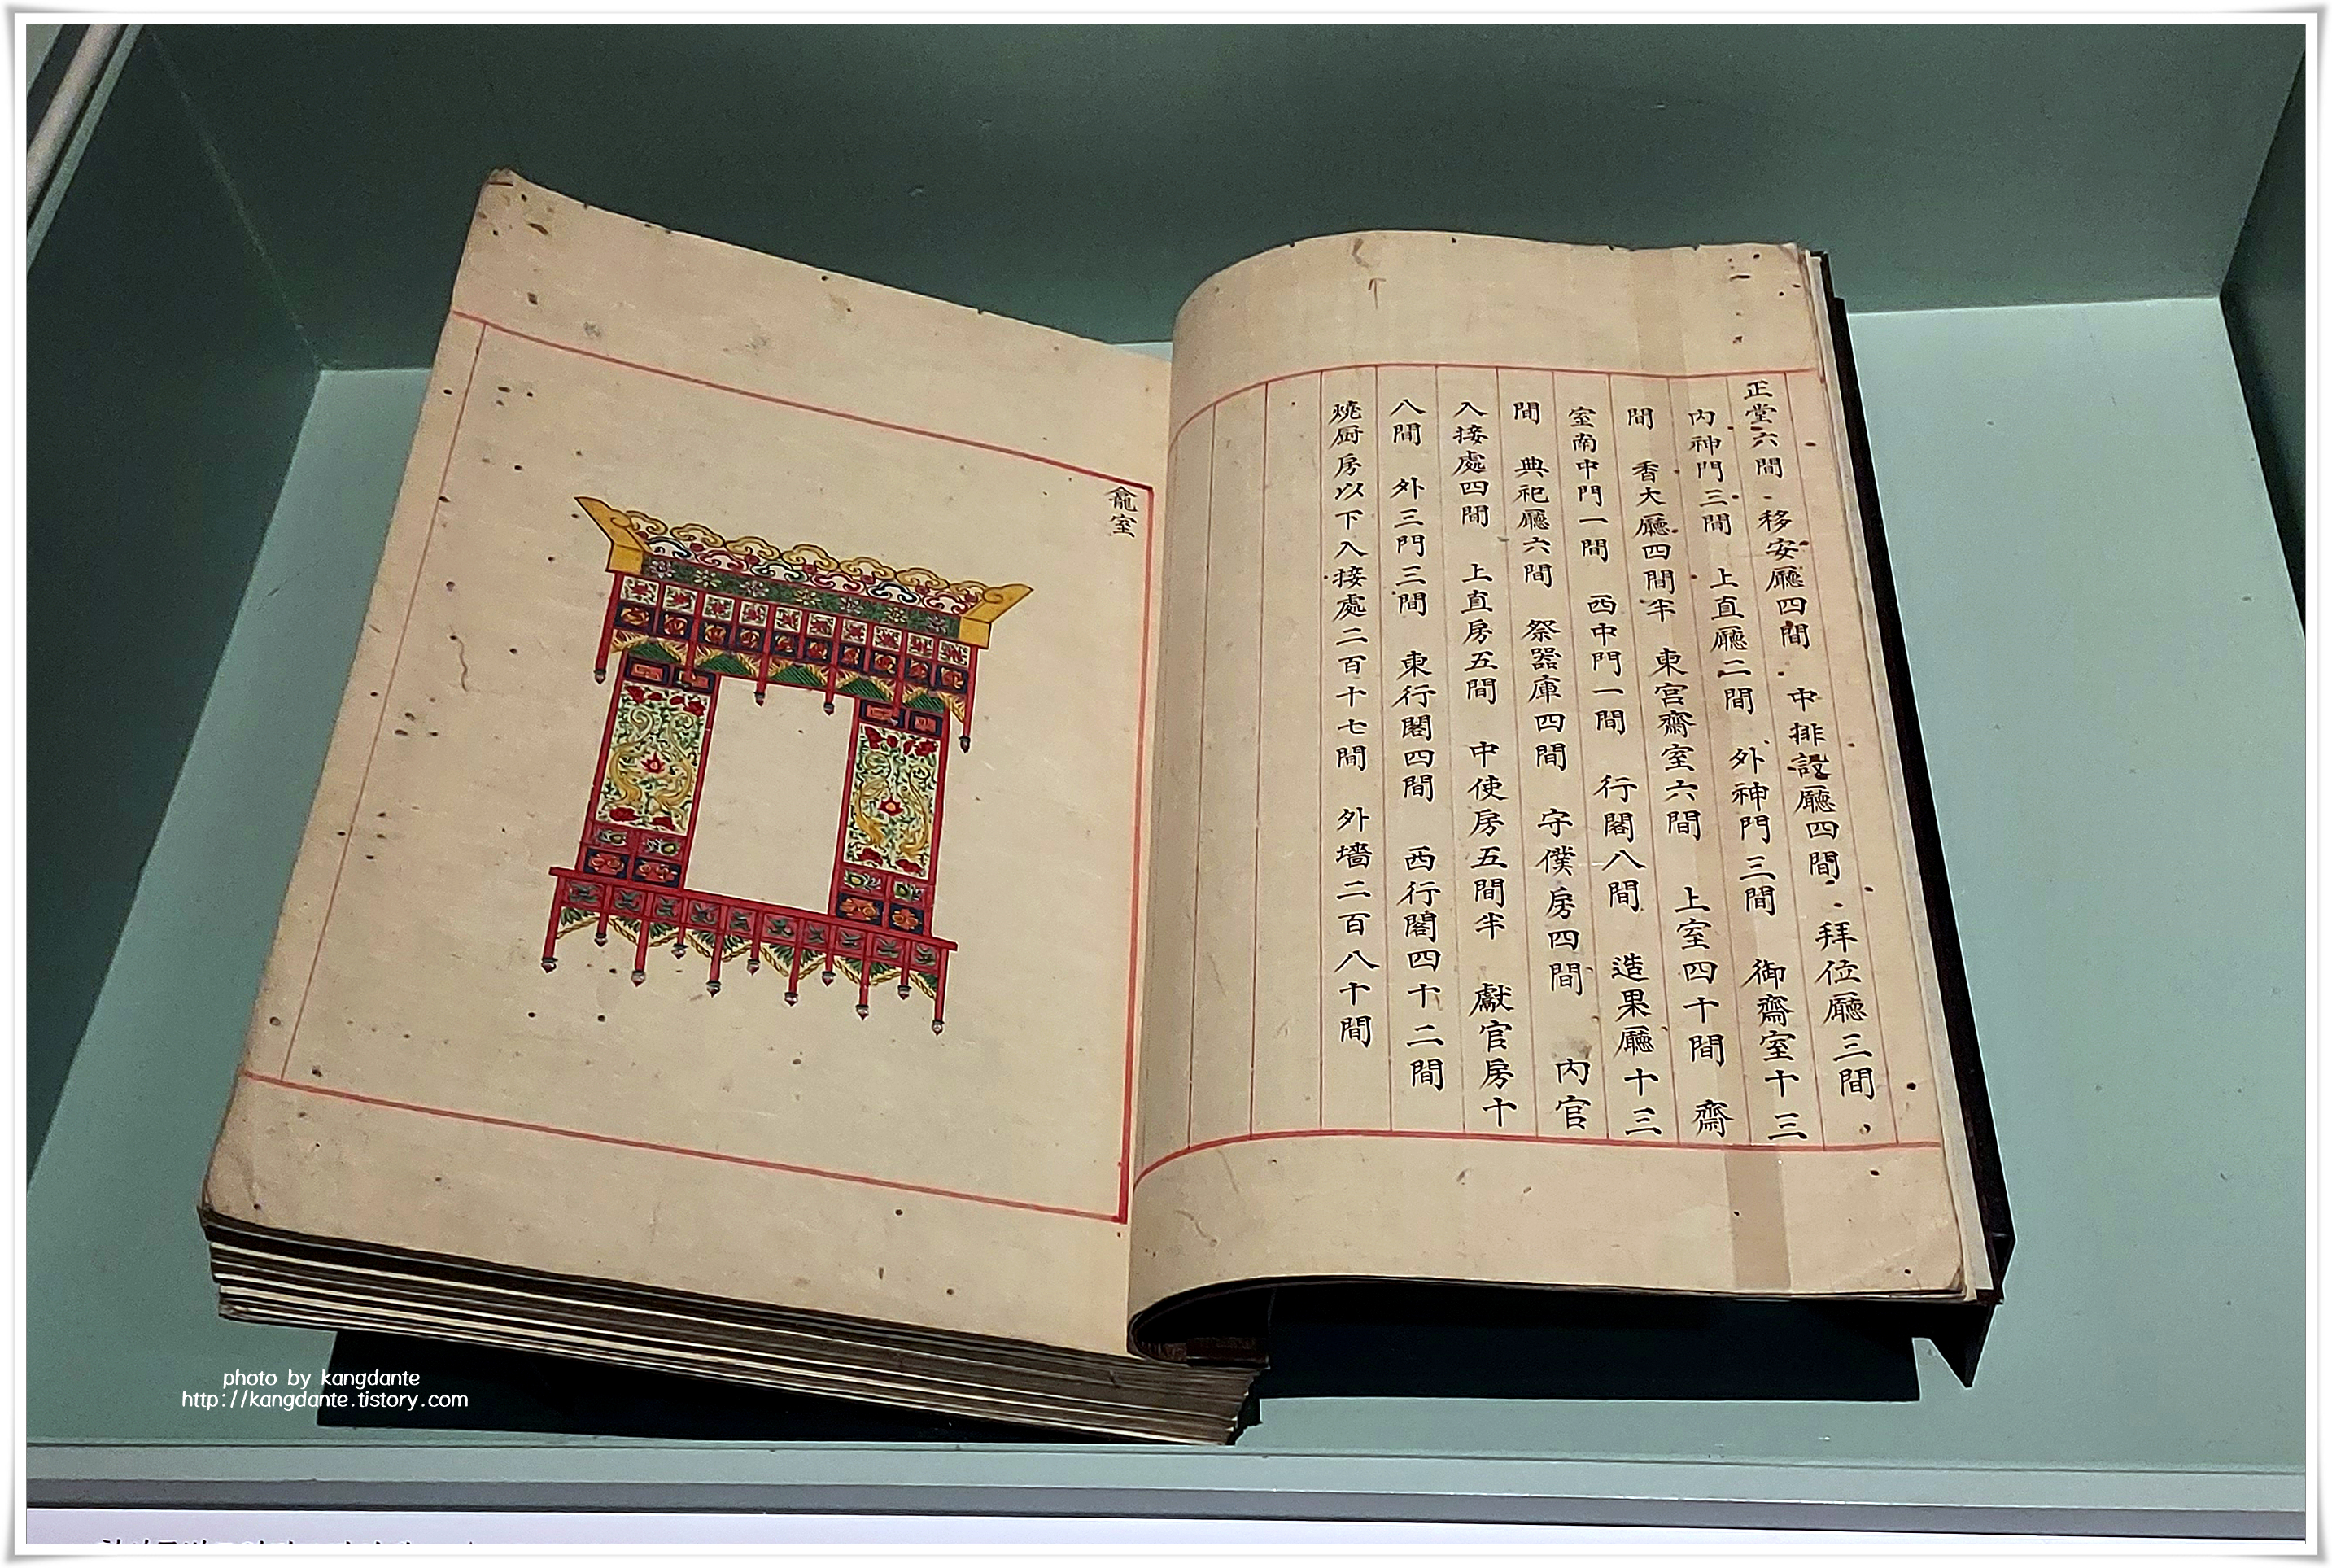 正堂六間 移安廳四間 中排設廳四間 拜位廳三間
內神門三間 上直廳二間 外神門三間 御齋室十三
間 香大廳四間半 東宮齋室六間 上室四十間 齋
室南中門一間 西中門一間 行閣八間 造果廳十三
間 典祀廳六間 祭器庫四間 守僕房四間 內官
入接處四間 上直房五間 中使房五間半 獻官房十
八間 外三門三間 東行閣四間 西行閣四十二間
燒厨房以下入接處二百十七間 外墻二百八十間
龕室
photo by kangdante
http://kangdante.tistory.com